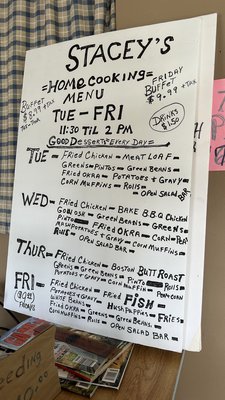 STACEY'S
=HOME COOKING=
MENU
BUFFET
$8.99 + TAX
FRIDAY
BUFFET
$9.99 + TAX
TUE - FRI
11:30 TIL 2 PM
DRINKS
$1.50
GOOD DESSERTS EVERY DAY
TUE - FRIED CHICKEN - MEAT LOAF -
GREENS - PINTOS - GREEN BEANS -
FRIED OKRA - POTATOES + GRAVY -
CORN MUFFINS - ROLLS -
OPEN SALAD BAR
WED - FRIED CHICKEN - BAKE BBQ CHICKEN
GREEN BEANS - GREENS -
PINTO - FRIED OKRA - CORN -
MASH POTATOES + GRAVY - CORN MUFFINS -
ROLLS - OPEN SALAD BAR -
THUR - FRIED CHICKEN - BOSTON BUTT ROAST
GREENS - GREEN BEANS - PINTOS -
POTATOES + GRAVY - CORN MUFFIN - CORN
ROLLS - OPEN SALAD BAR
FRI - FRIED CHICKEN - FRIED FISH -
POTATOES + GRAVY - HUSH PUPPIES - FRIES
WHITE BEANS
FRIED OKRA - GREENS - GREEN BEANS.
CORN MUFFINS - ROLLS - OPEN SALAD BAR -